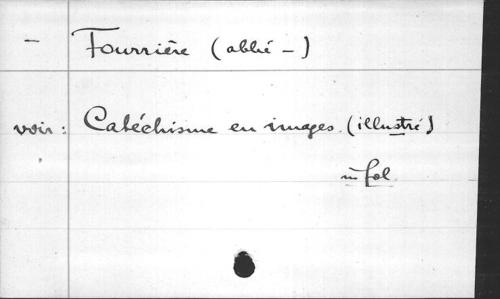 — Fourrière (abbé —)
voir : Catéchisme en images (illustré)
in fol.